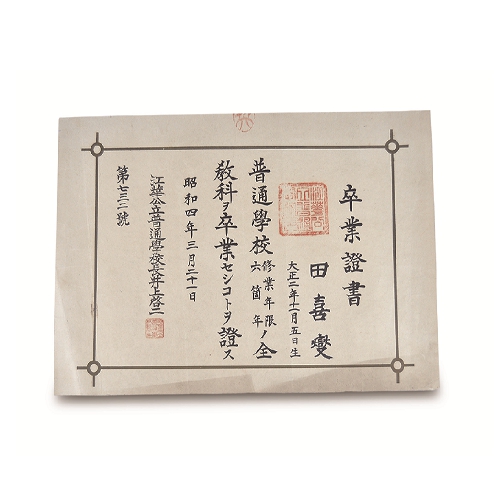 卒業證書
田喜燮
大正二年十一月五日生
普通學校修業年限六箇年ノ全
教科ヲ卒業セシコトヲ證ス
昭和四年三月二十一日
江華公立普通學校長井上啓二
第七三二號